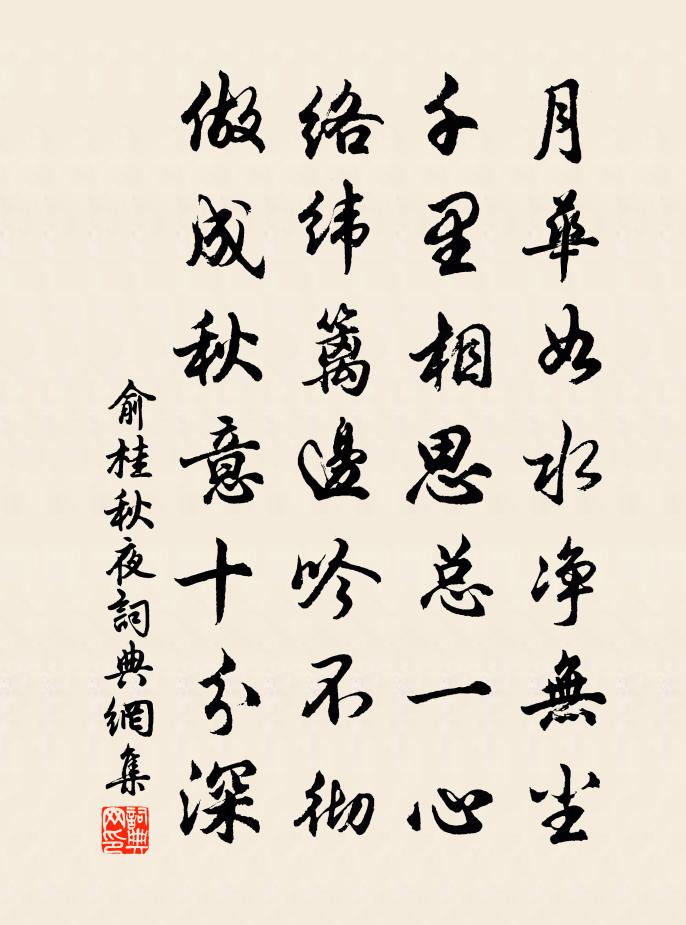 月華如水净無尘
千里相思总一心
絡緯篱邊吟不彻
做成秋意十分深
俞桂秋夜詞典網集
詞典网印